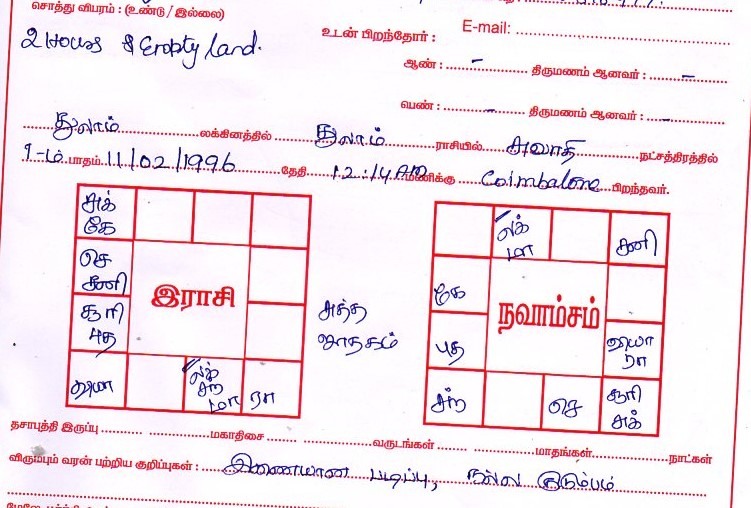 சொத்து விபரம் : (உண்டு / இல்லை)
2 Houss & Empty land.
உடன் பிறந்தோர் : E-mail:
ஆண் : - திருமணம் ஆனவர் : -
பெண் : - திருமணம் ஆனவர் : -
துலாம் லக்கினத்தில் துலாம் ராசியில் சுவாதி நட்சத்திரத்தில்
1-ம் பாதம் 11/02/1996 தேதி 12:14 AM மணிக்கு Coimbatore பிறந்தவர்.
சுக்
கே
செ
சனி
சூரி
புத
இராசி
லக்
சந்
மா
ரா
சுத்த
ஜாதகம்
லக்
மா
சனி
கே
புத
நவாம்சம்
ரா
சந்
செ
சூரி
சுக்
தசாபுத்தி இருப்பு மகாதிசை வருடங்கள் மாதங்கள் நாட்கள்
விரும்பும் வரன் பற்றிய குறிப்புகள் : இணையான படிப்பு, நல்ல குடும்பம்